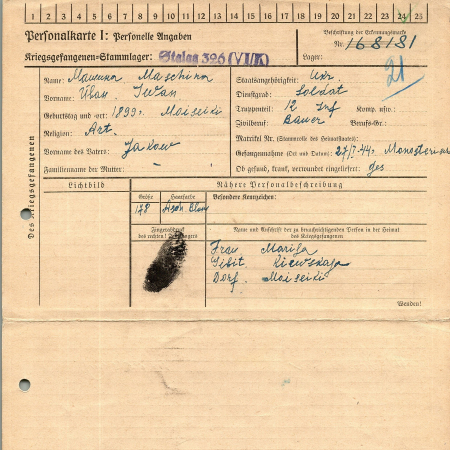 1 2 3 4 5 6 7 8 9 10 11 12 13 14 15 16 17 18 19 20 21 22 23 24 25
Personalkarte I: Personelle Angaben
Kriegsgefangenen-Stammlager: Stalag 326 (VI/K)
Beschriftung der Erkennungsmarke
Nr. 168181
Lager:
21
Des Kriegsgefangenen
Name: Машина Maschina
Vorname: Iwan
Geburtstag und -ort: 1899 Moiseiki
Religion:
Vorname des Vaters: Jakow
Familienname der Mutter:
Staatsangehörigkeit: Ukr.
Dienstgrad: Soldat
Truppenteil: 12 Inf Komp. usw.:
Zivilberuf: Bauer Berufs-Gr.:
Matrikel Nr. (Stammrolle des Heimatstaates):
Gefangennahme (Ort und Datum):
Ob gesund, krank, verwundet eingeliefert: ges
Lichtbild
Nähere Personalbeschreibung
Größe Haarfarbe Besondere Kennzeichen:
178
Fingerabdruck
des rechten Zeigefingers
Name und Anschrift der zu benachrichtigenden Person in der Heimat
des Kriegsgefangenen
Frau Marija
Gebit. Kiewskaja
Dorf. Moiseiki
Wenden!